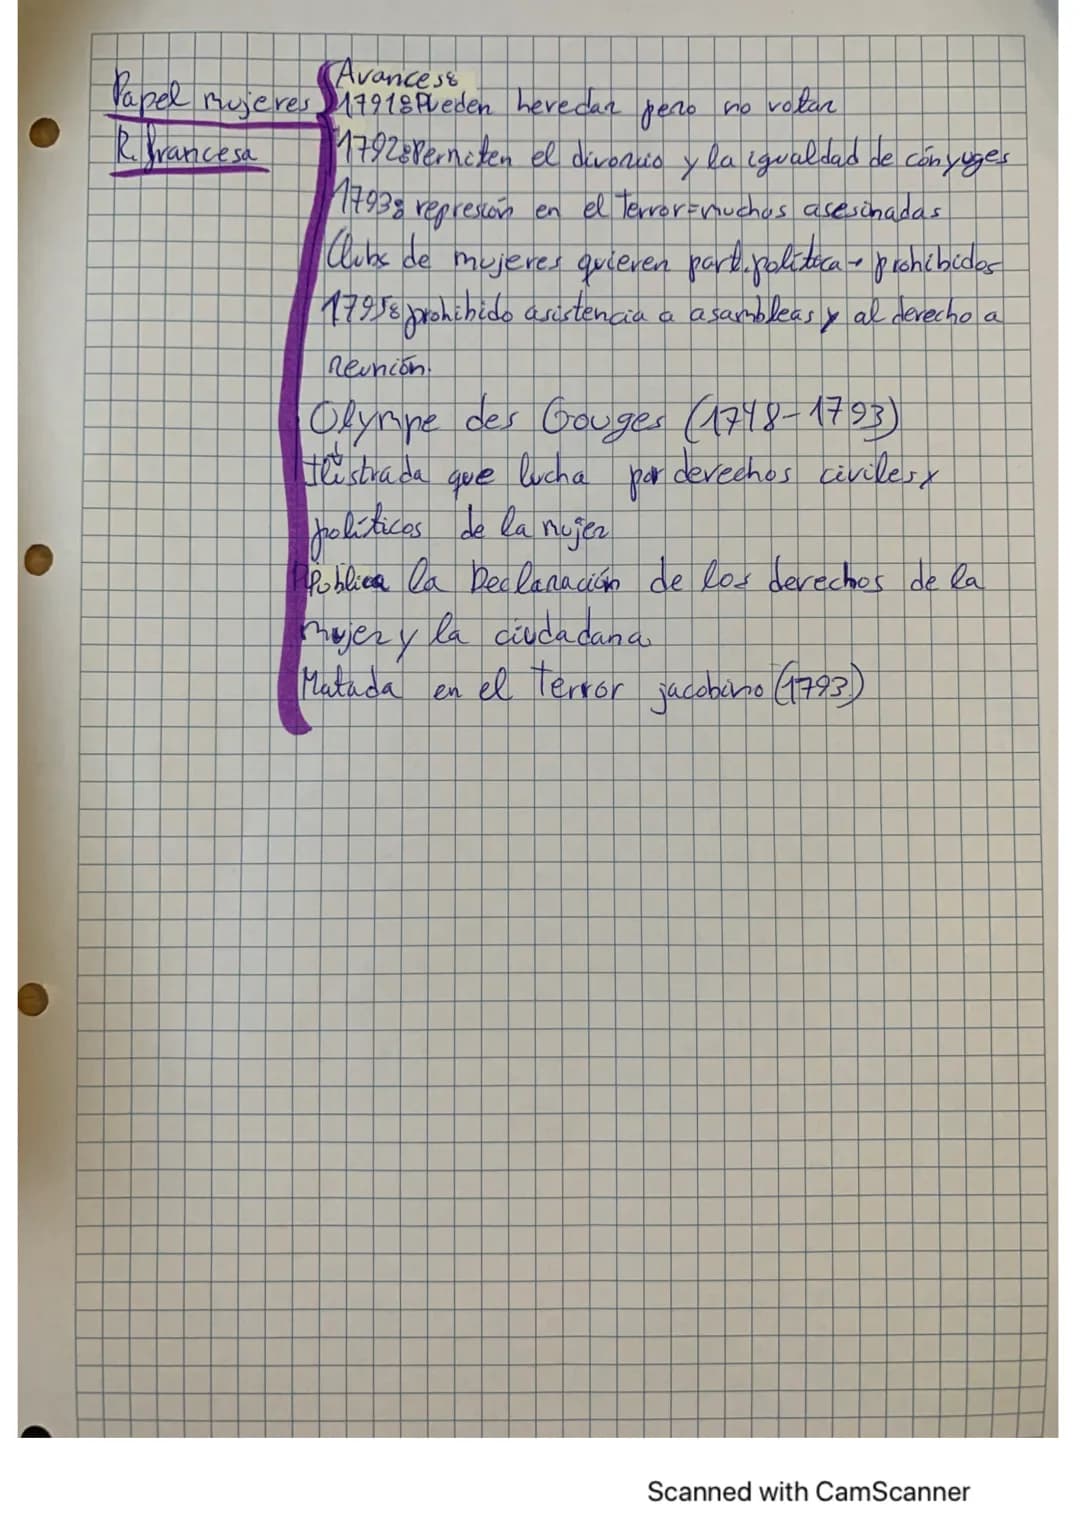 Papel mujeres
R. francesa
Avances:
1791: Pueden heredar pero no votar
1792: Permiten el divorcio y la igualdad de cónyuges
1793: represión en el Terror = muchas asesinadas
Clubs de mujeres quieren part. política → prohibidos
1795: prohibido asistencia a asambleas y al derecho a
reunión.
Olympe des Gouges (1748-1793)
Ilustrada que lucha por derechos civiles y
políticos de la mujer
Publica la Declaración de los derechos de la
mujer y la ciudadana
Matada en el Terror jacobino (1793)
Scanned with CamScanner